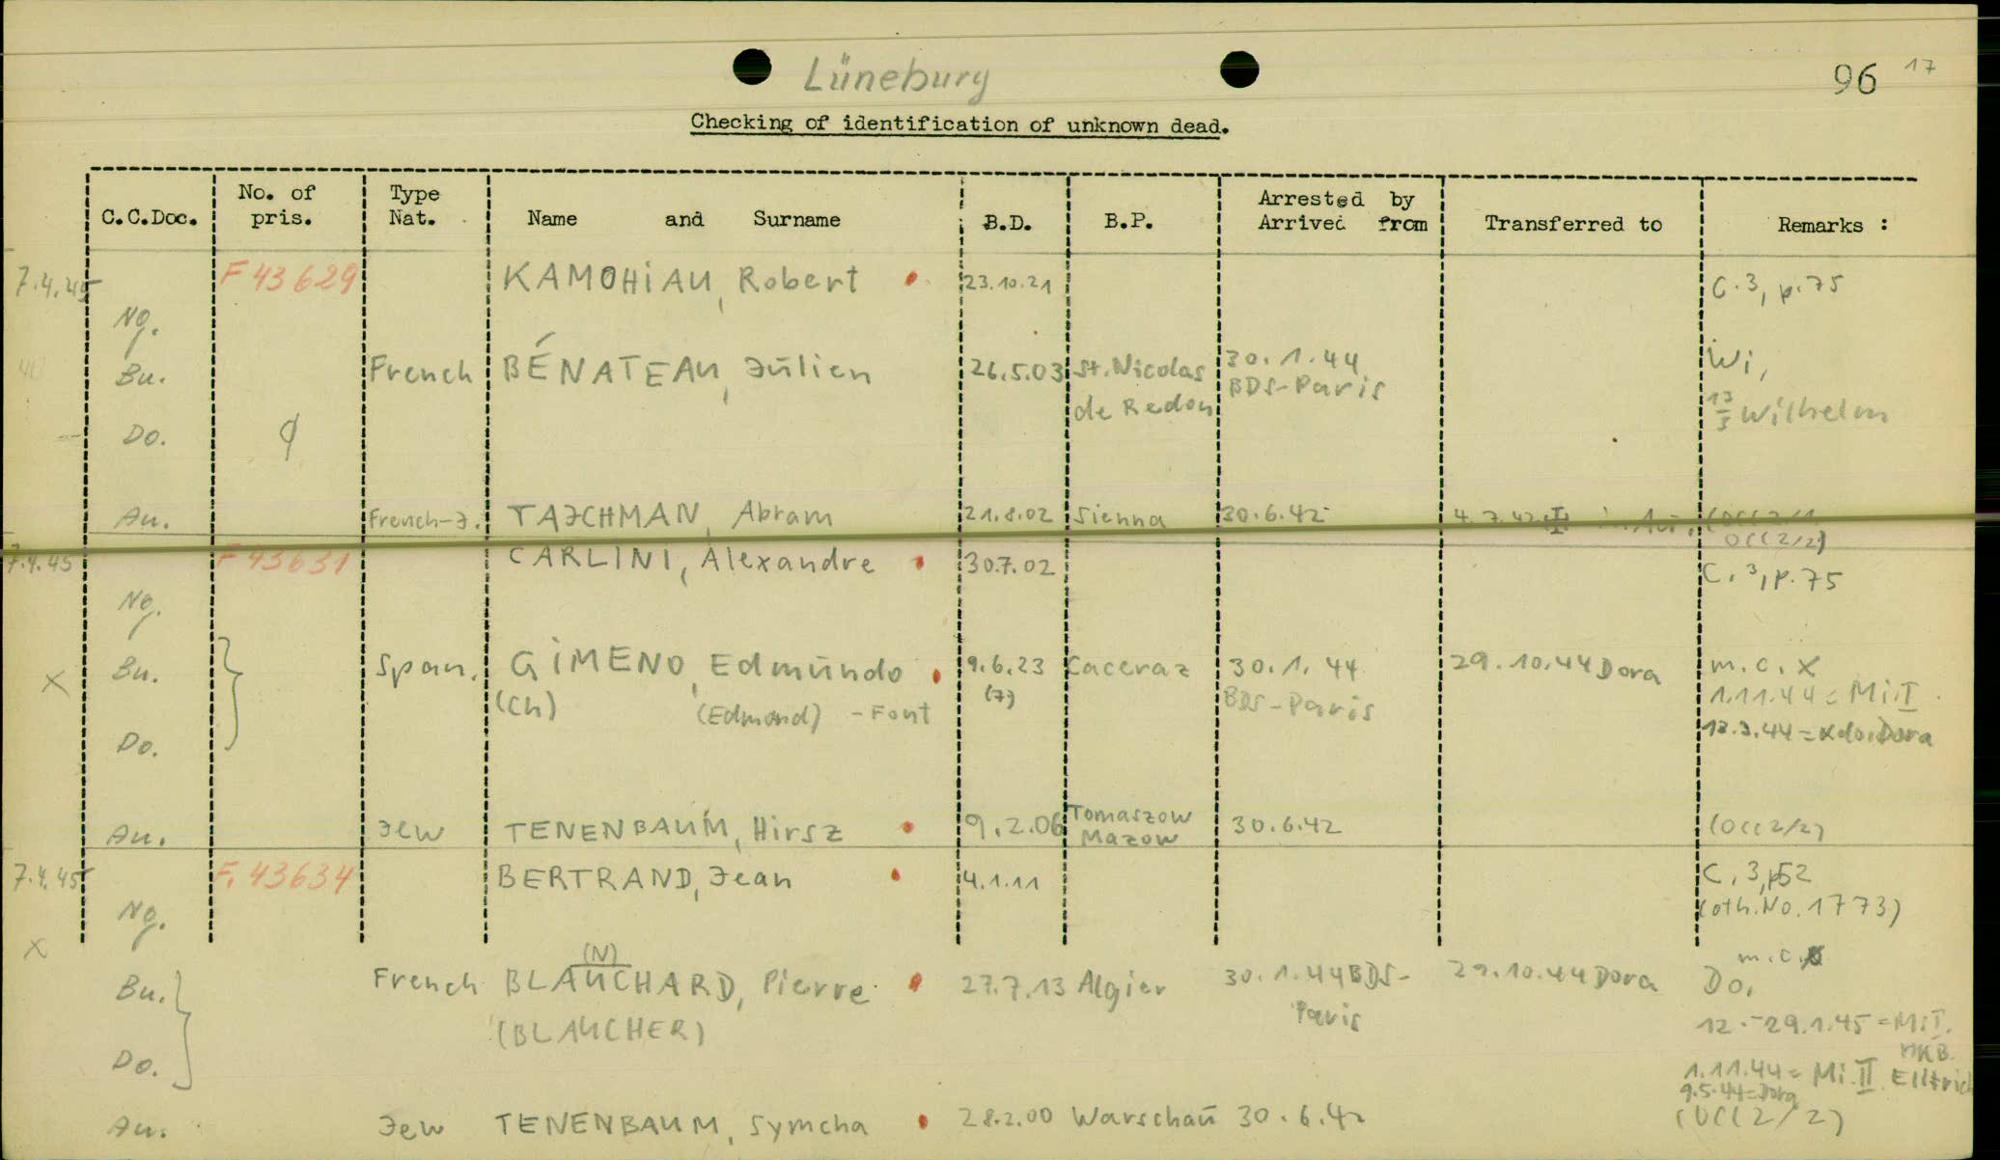 Lüneburg
96 17
Checking of identification of unknown dead.
C.C.Doc. No. of pris. Type Nat. Name and Surname B.D. B.P. Arrested by Arrived from Transferred to Remarks :
7.4.45 F 43629 KAMOHiAU, Robert 23.10.21 C.3, p.75
Ng.
Bu. French BÉNATEAU, Julien 26.5.03 St. Nicolas 30.1.44 Wi,
de Redon BDS-Paris 13/3 Wilhelm
Do.
Au. French-J. TAJCHMAN, Abram 21.8.02 Sienna 30.6.42 4.7.42
OCC2/2)
7.4.45 F 43631 CARLINI, Alexandre 30.7.02 C.3, p.75
Ng.
X Bu. Span. GiMENO, Edmundo 9.6.23 Caceraz 30.1.44 29.10.44 Dora m.c. X
(Ch) (Edmond) -Font (7) BDS-Paris 1.11.44 = Mi.I
Do. 13.3.44 = Kdo.Dora
Au. Jew TENENBAUM, Hirsz 9.2.06 Tomaszow Mazow 30.6.42 (OCC2/2)
7.4.45 F. 43634 BERTRAND, Jean 4.1.11 C.3, p52
Ng. (oth.No.1773)
X (N) m.c.
Bu. French BLAUCHARD, Pierre 27.7.13 Algier 30.1.44 BDS-Paris 29.10.44 Dora Do.
(BLAUCHER) 12.-29.1.45 = Mi I.
HKB.
Do. 1.11.44 = Mi.II Ellrich
9.5.44=Dora
Au. Jew TENENBAUM, Symcha 28.2.00 Warschau 30.6.42 (OCC2/2)